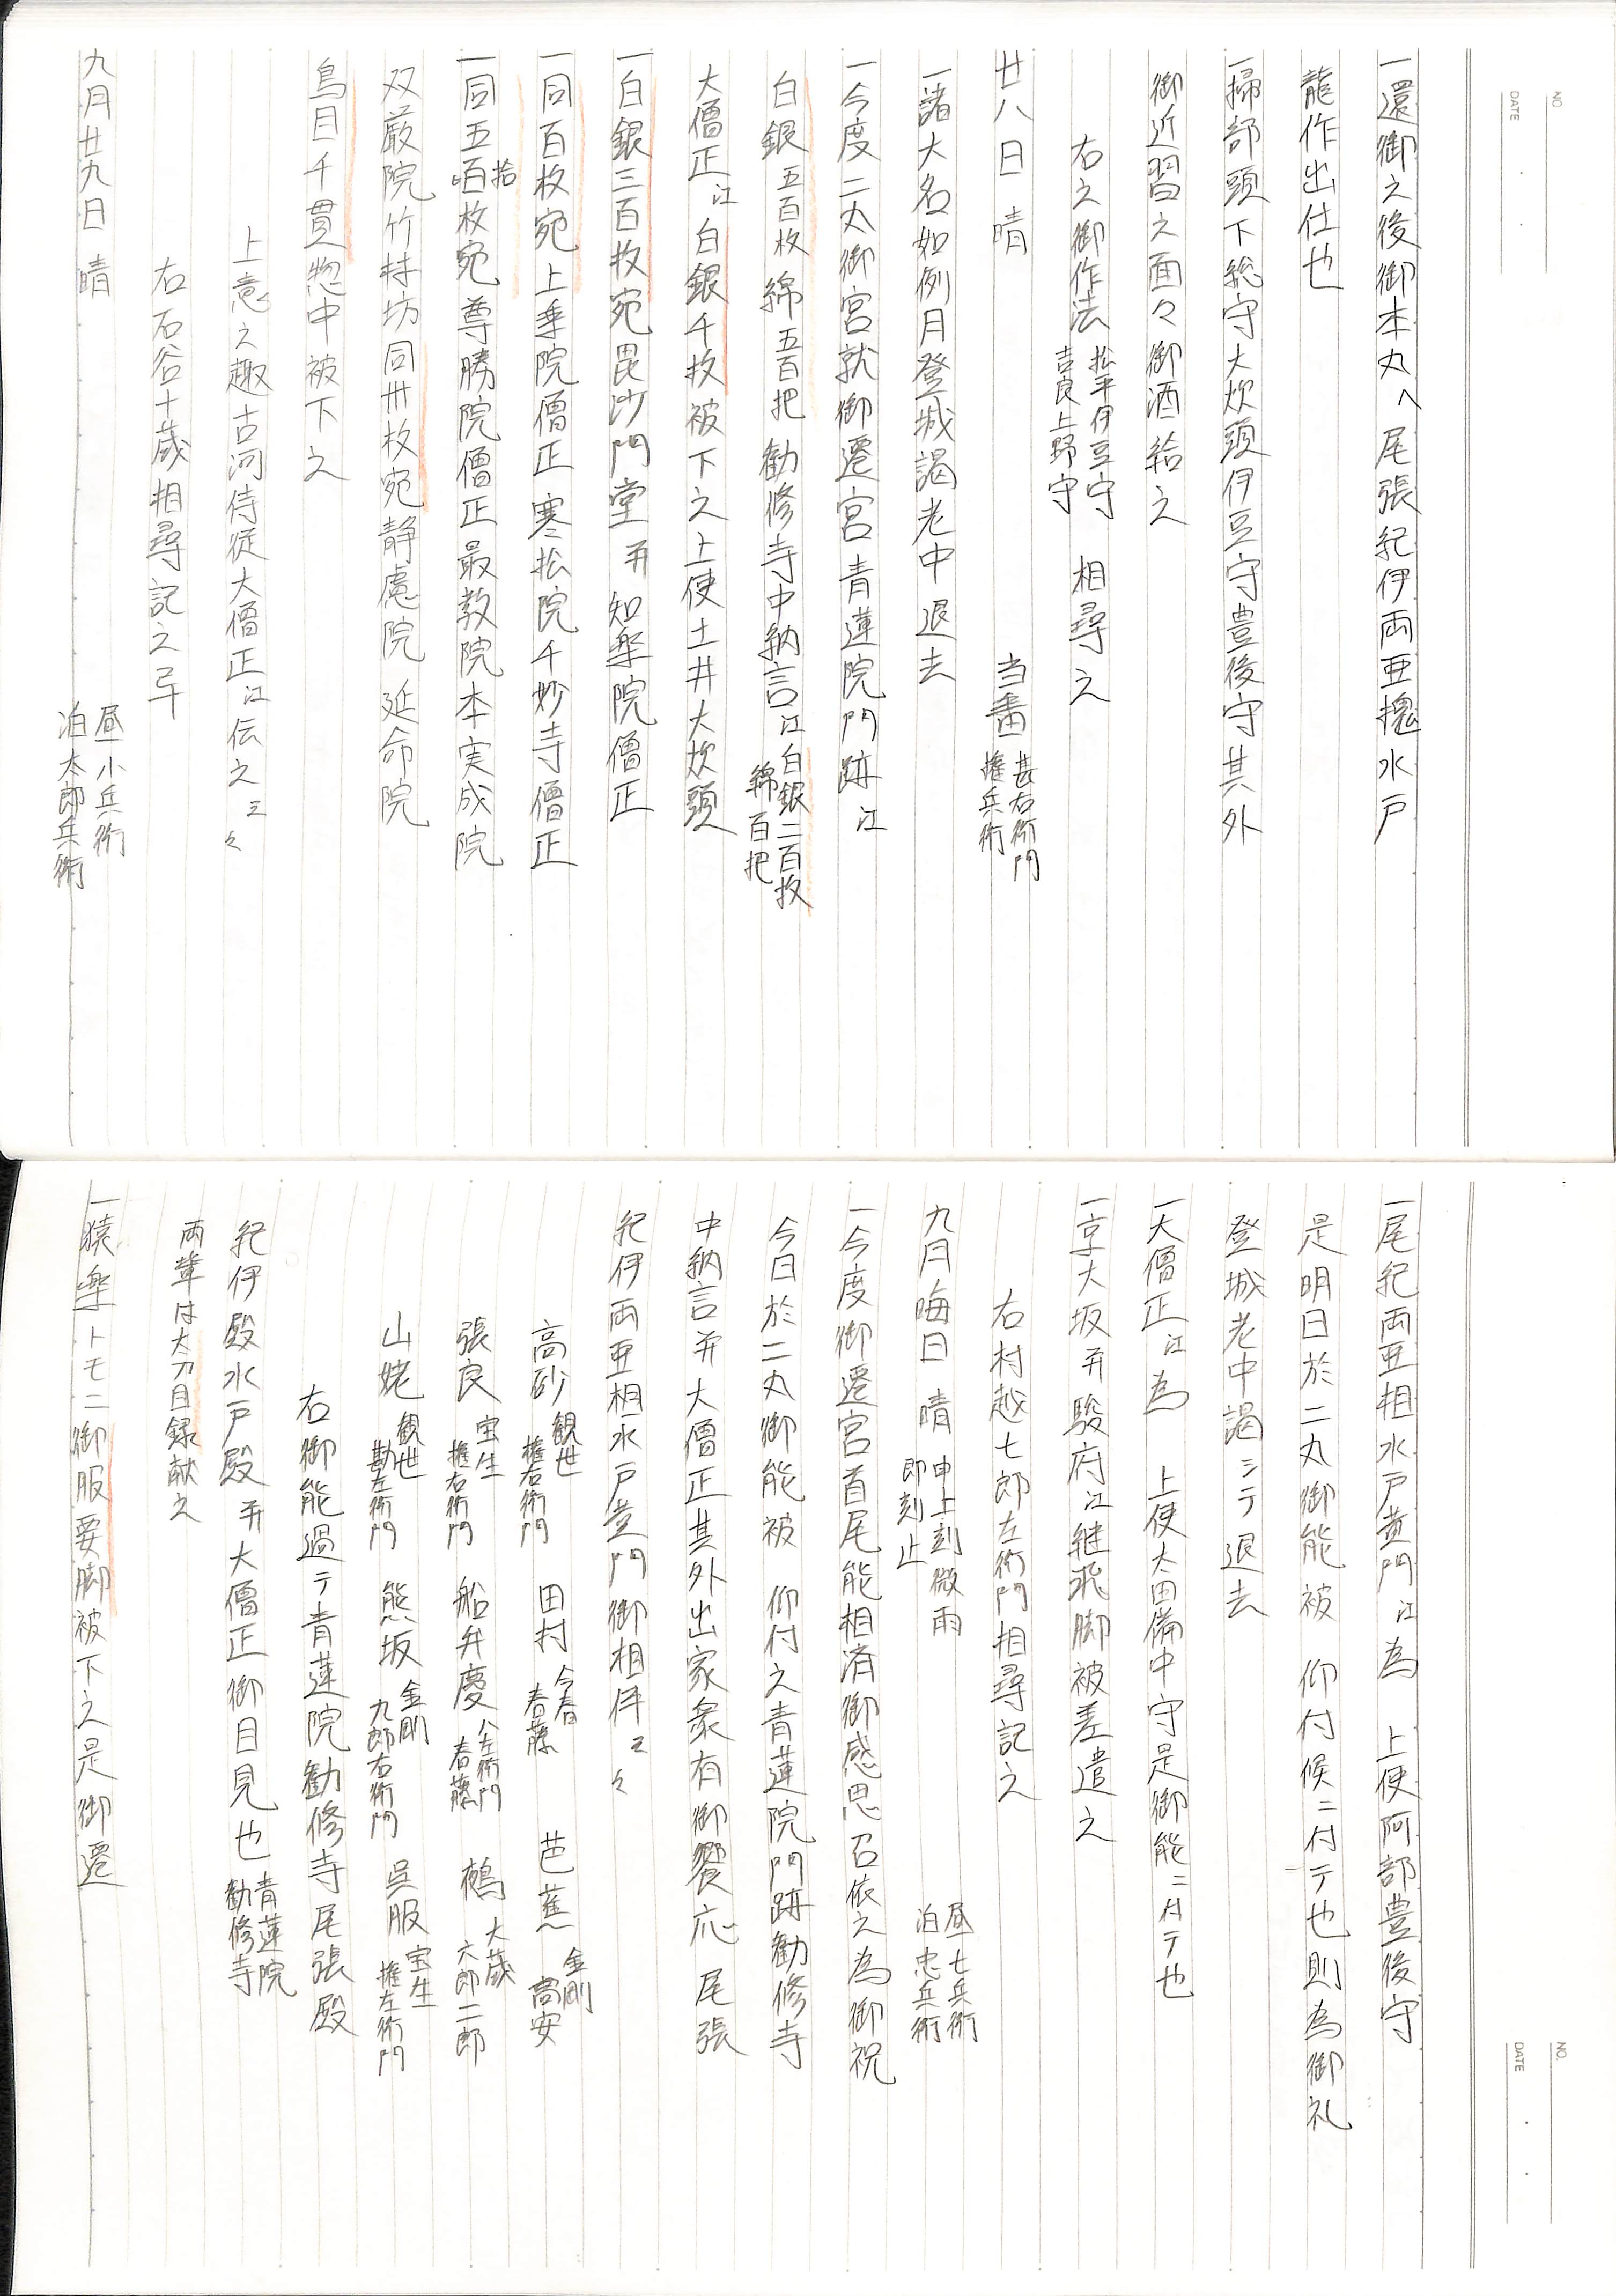 NO.
DATE
一還御之後御本丸へ尾張紀伊両亜槐水戸
龍作出仕也
一掃部頭下総守大炊頭伊豆守豊後守其外
御近習之面々御酒給之
右之御作法 松平伊豆守 吉良上野守 相尋之
廿八日 晴 当番 甚右衛門 権兵衛
一諸大名如例月登城謁老中退去
一今度二丸御宮就御遷宮青蓮院門跡江
白銀五百枚綿五百把勧修寺中納言江白銀二百枚 綿百把
大僧正江白銀千枚被下之上使土井大炊頭
一白銀三百枚宛毘沙門堂并知楽院僧正
一同百枚宛上乗院僧正寒松院千妙寺僧正
一同五拾枚宛尊勝院僧正最教院本実成院
双厳院竹林坊同卅枚宛静慮院延命院
鳥目千貫惣中被下之
上意之趣古河侍従大僧正江伝之云々
右石谷十蔵相尋記之畢
九月廿九日 晴 昼 小兵衛 泊 太郎兵衛
NO.
DATE
一尾紀両亜相水戸黄門江為 上使阿部豊後守
是明日於二丸御能被 仰付候ニ付テ也則為御礼
登城老中謁シテ退去
一大僧正江為 上使太田備中守是御能ニ付テ也
一京大坂并駿府江継飛脚被差遣之
右村越七郎左衛門相尋記之
九月晦日 晴 申上刻微雨 即刻止 昼 七兵衛 泊 忠兵衛
一今度御遷宮首尾能相済御感思召依之為御祝
今日於二丸御能被 仰付之青蓮院門跡勧修寺
中納言并大僧正其外出家衆有御饗応 尾張
紀伊両亜相水戸黄門御相伴云々
高砂 観世 権右衛門 田村 今春 春藤 芭蕉 金剛 高安
張良 宝生 権右衛門 船弁慶 八左衛門 春藤 鵺 大蔵 六郎二郎
山姥 観世 勘左衛門 熊坂 金剛 九郎右衛門 呉服 宝生 権左衛門
右御能過テ青蓮院勧修寺尾張殿
紀伊殿水戸殿并大僧正御目見也 青蓮院 勧修寺
両輩は太刀目録献之
一猿楽トモニ御服要脚被下之是御遷